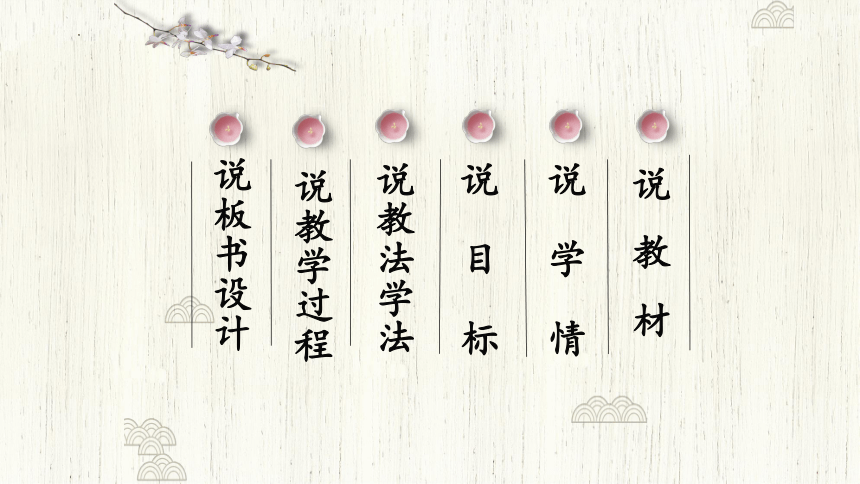 说教材
说学情
说目标
说教法学法
说教学过程
说板书设计